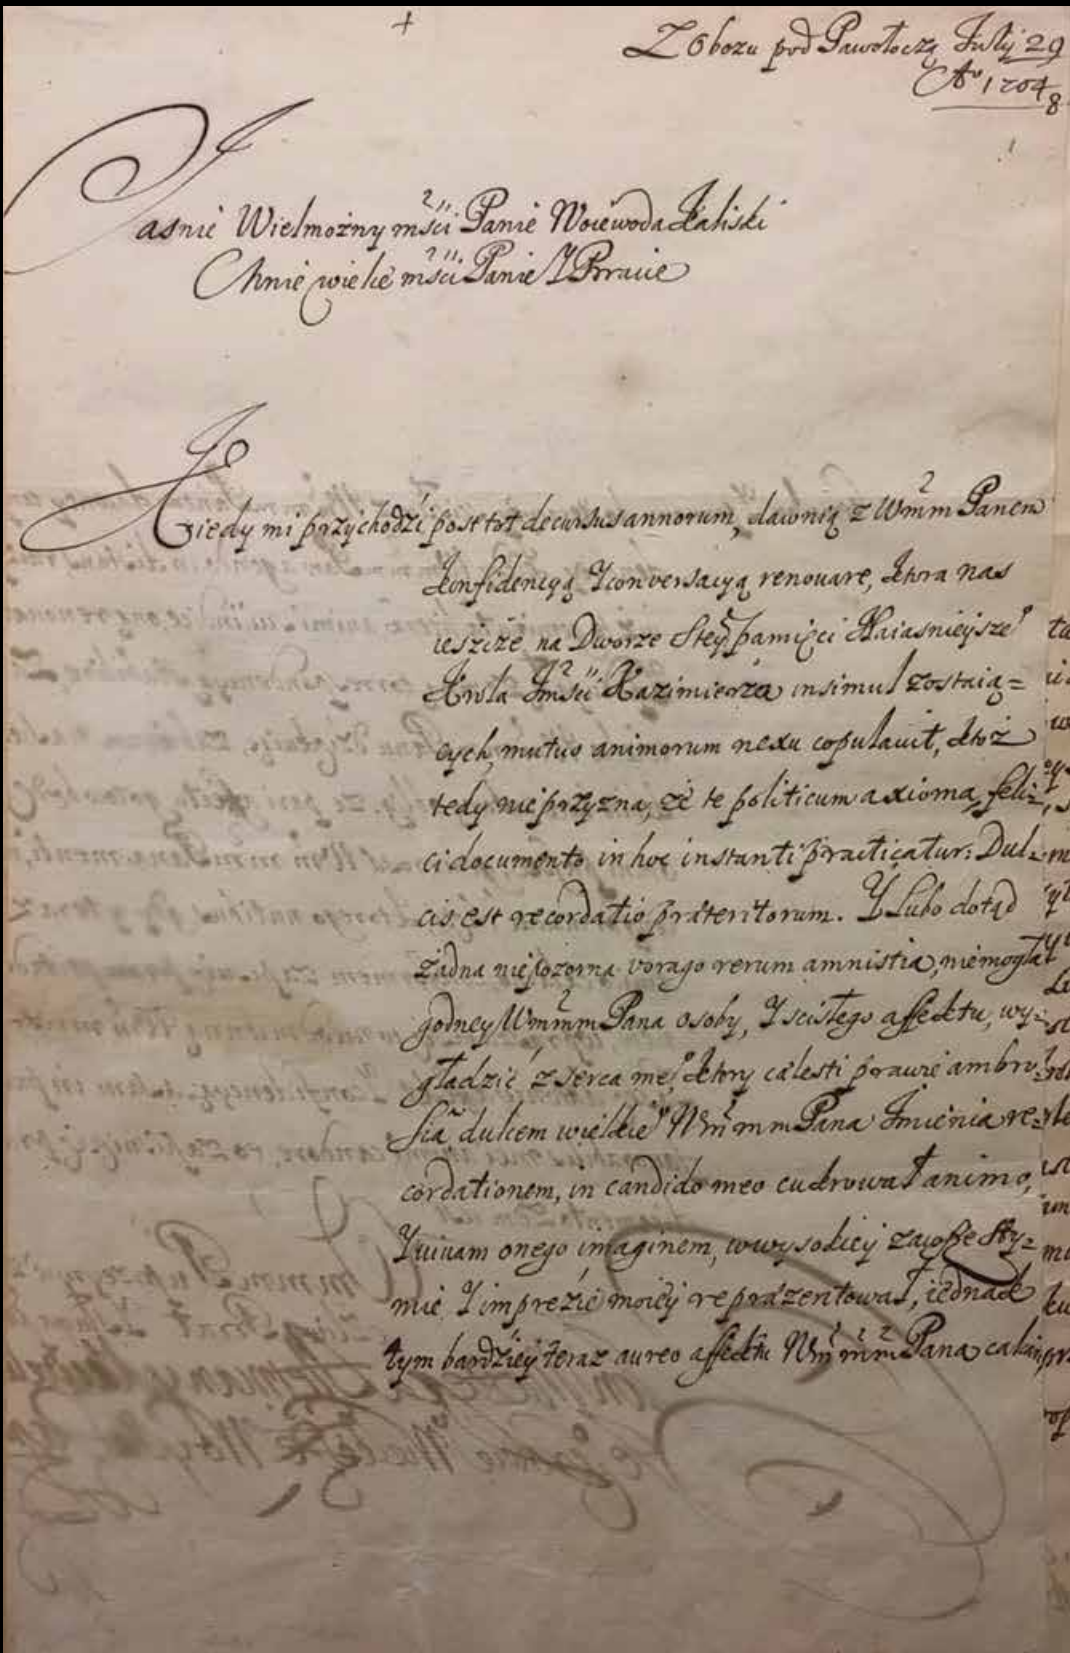 Z Obozu pod Pawołoczą Julij 29
Aº 1704
8
Jasnie Wielmożny mści Panie Woiewoda Kaliski
Mnie wielce mści Panie Y Bracie
Kiedy mi przychodzi post tot decursus annorum, dawnią z Wmm Panem
Konfidencyą Y conversacyą renovare, ktora nas
ieszcze na Dworze Stey pamięci Naiasnieysze°
Krola Jmści Kazimierza insimul zostaią=
cych, mutuo animorum nexu copulavit, ktoż
tedy nie przyzna, że te politicum axioma, feli=
ci documento in hoc instanti practicatur: Dul=
cis est recordatio præteritorum. Y Lubo dotąd
żadna niepozorna vorago rerum amnistia, niemogła
godney Wmmm Pana osoby, Y scisłego affektu, wy=
gładzić z serca me° ktory cælesti prawie ambro=
sia dulcem wielkie° Wmmm Pana Imienia re=
cordationem, in candido meo cukrował animo,
Y vivam onego imaginem, w wysokiey zawsze Sty=
mie Y imprezie moiey repræzentował, iednak
tym bardziey teraz aureo affektu Wmmm Pana